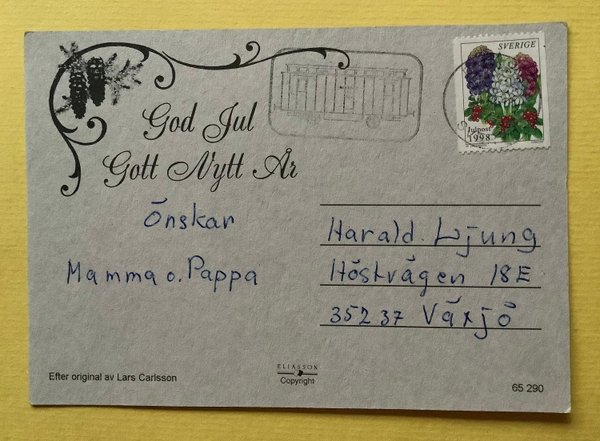 SVERIGE
Julpost
1998
God Jul
Gott Nytt År
Önskar
Mamma o. Pappa
Harald Ljung
Höstvägen 18E
35237 Växjö
Efter original av Lars Carlsson
ELIASSON
Copyright
65 290